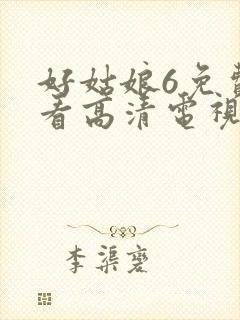 好姑娘6免費
看高清電視
李渠薆